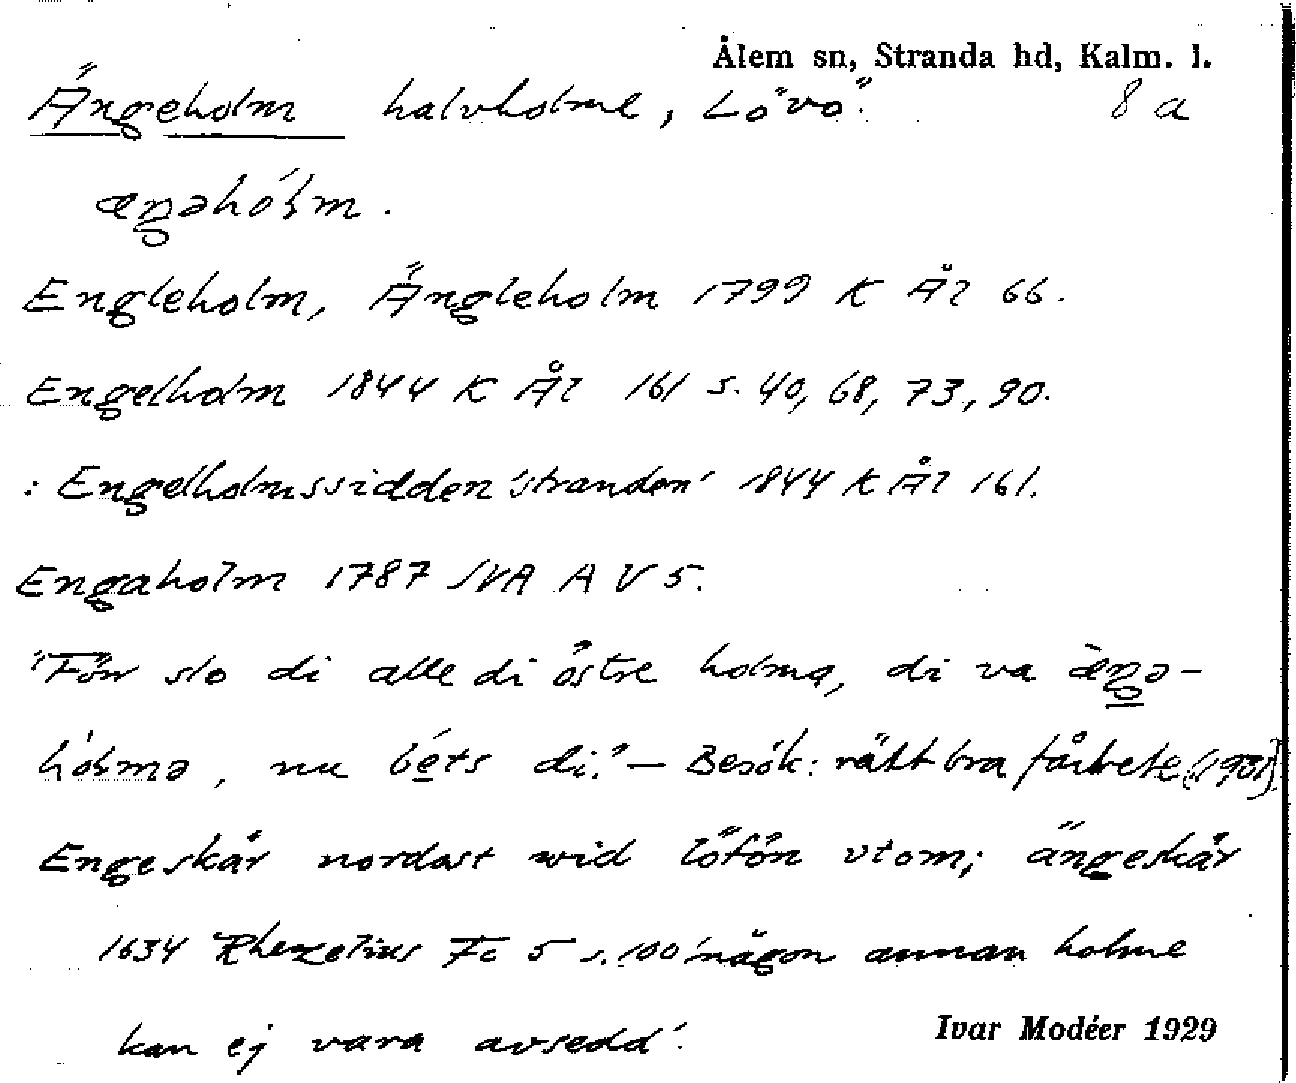 Ålem sn, Stranda hd, Kalm. l.
Ängeholm halvholme, Lövö. 8 a
æŋəhól̥m.
Engleholm, Ängleholm 1799 K Ål 66.
Engelholm 1844 K Ål 161 s. 40, 68, 73, 90.
: Engelholmssidden 'stranden' 1844 K Ål 161.
Engaholm 1787 SVA A V 5.
"Förr slo di alle di östre holma, di va æ̀ŋə-
hól̥mə, nu béts di." — Besök: rätt bra fårbete (1931)
Engeskär nordast wid löfön utom; ängeskär
1634 Rhezelius Fc 5 s. 100 'någon annan holme
kan ej vara avsedd'.
Ivar Modéer 1929